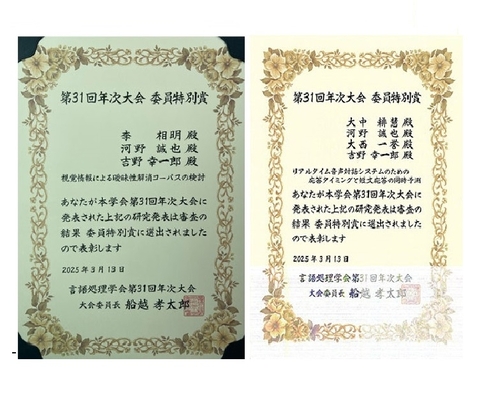 第31回年次大会 委員特別賞
李 相明 殿
河野 誠也 殿
吉野 幸一郎 殿
視覚情報による曖昧性解消コーパスの検討
あなたが本学会第31回年次大会に
発表された上記の研究発表は審査の
結果 委員特別賞に選出されました
ので表彰します
2025年3月13日
言語処理学会第31回年次大会
大会委員長 船越 孝太郎
第31回年次大会 委員特別賞
大中 緋慧 殿
河野 誠也 殿
大西 一誉 殿
吉野 幸一郎 殿
リアルタイム音声対話システムのための
応答タイミングと短文応答の同時予測
あなたが本学会第31回年次大会に
発表された上記の研究発表は審査の
結果 委員特別賞に選出されました
ので表彰します
2025年3月13日
言語処理学会第31回年次大会
大会委員長 船越 孝太郎